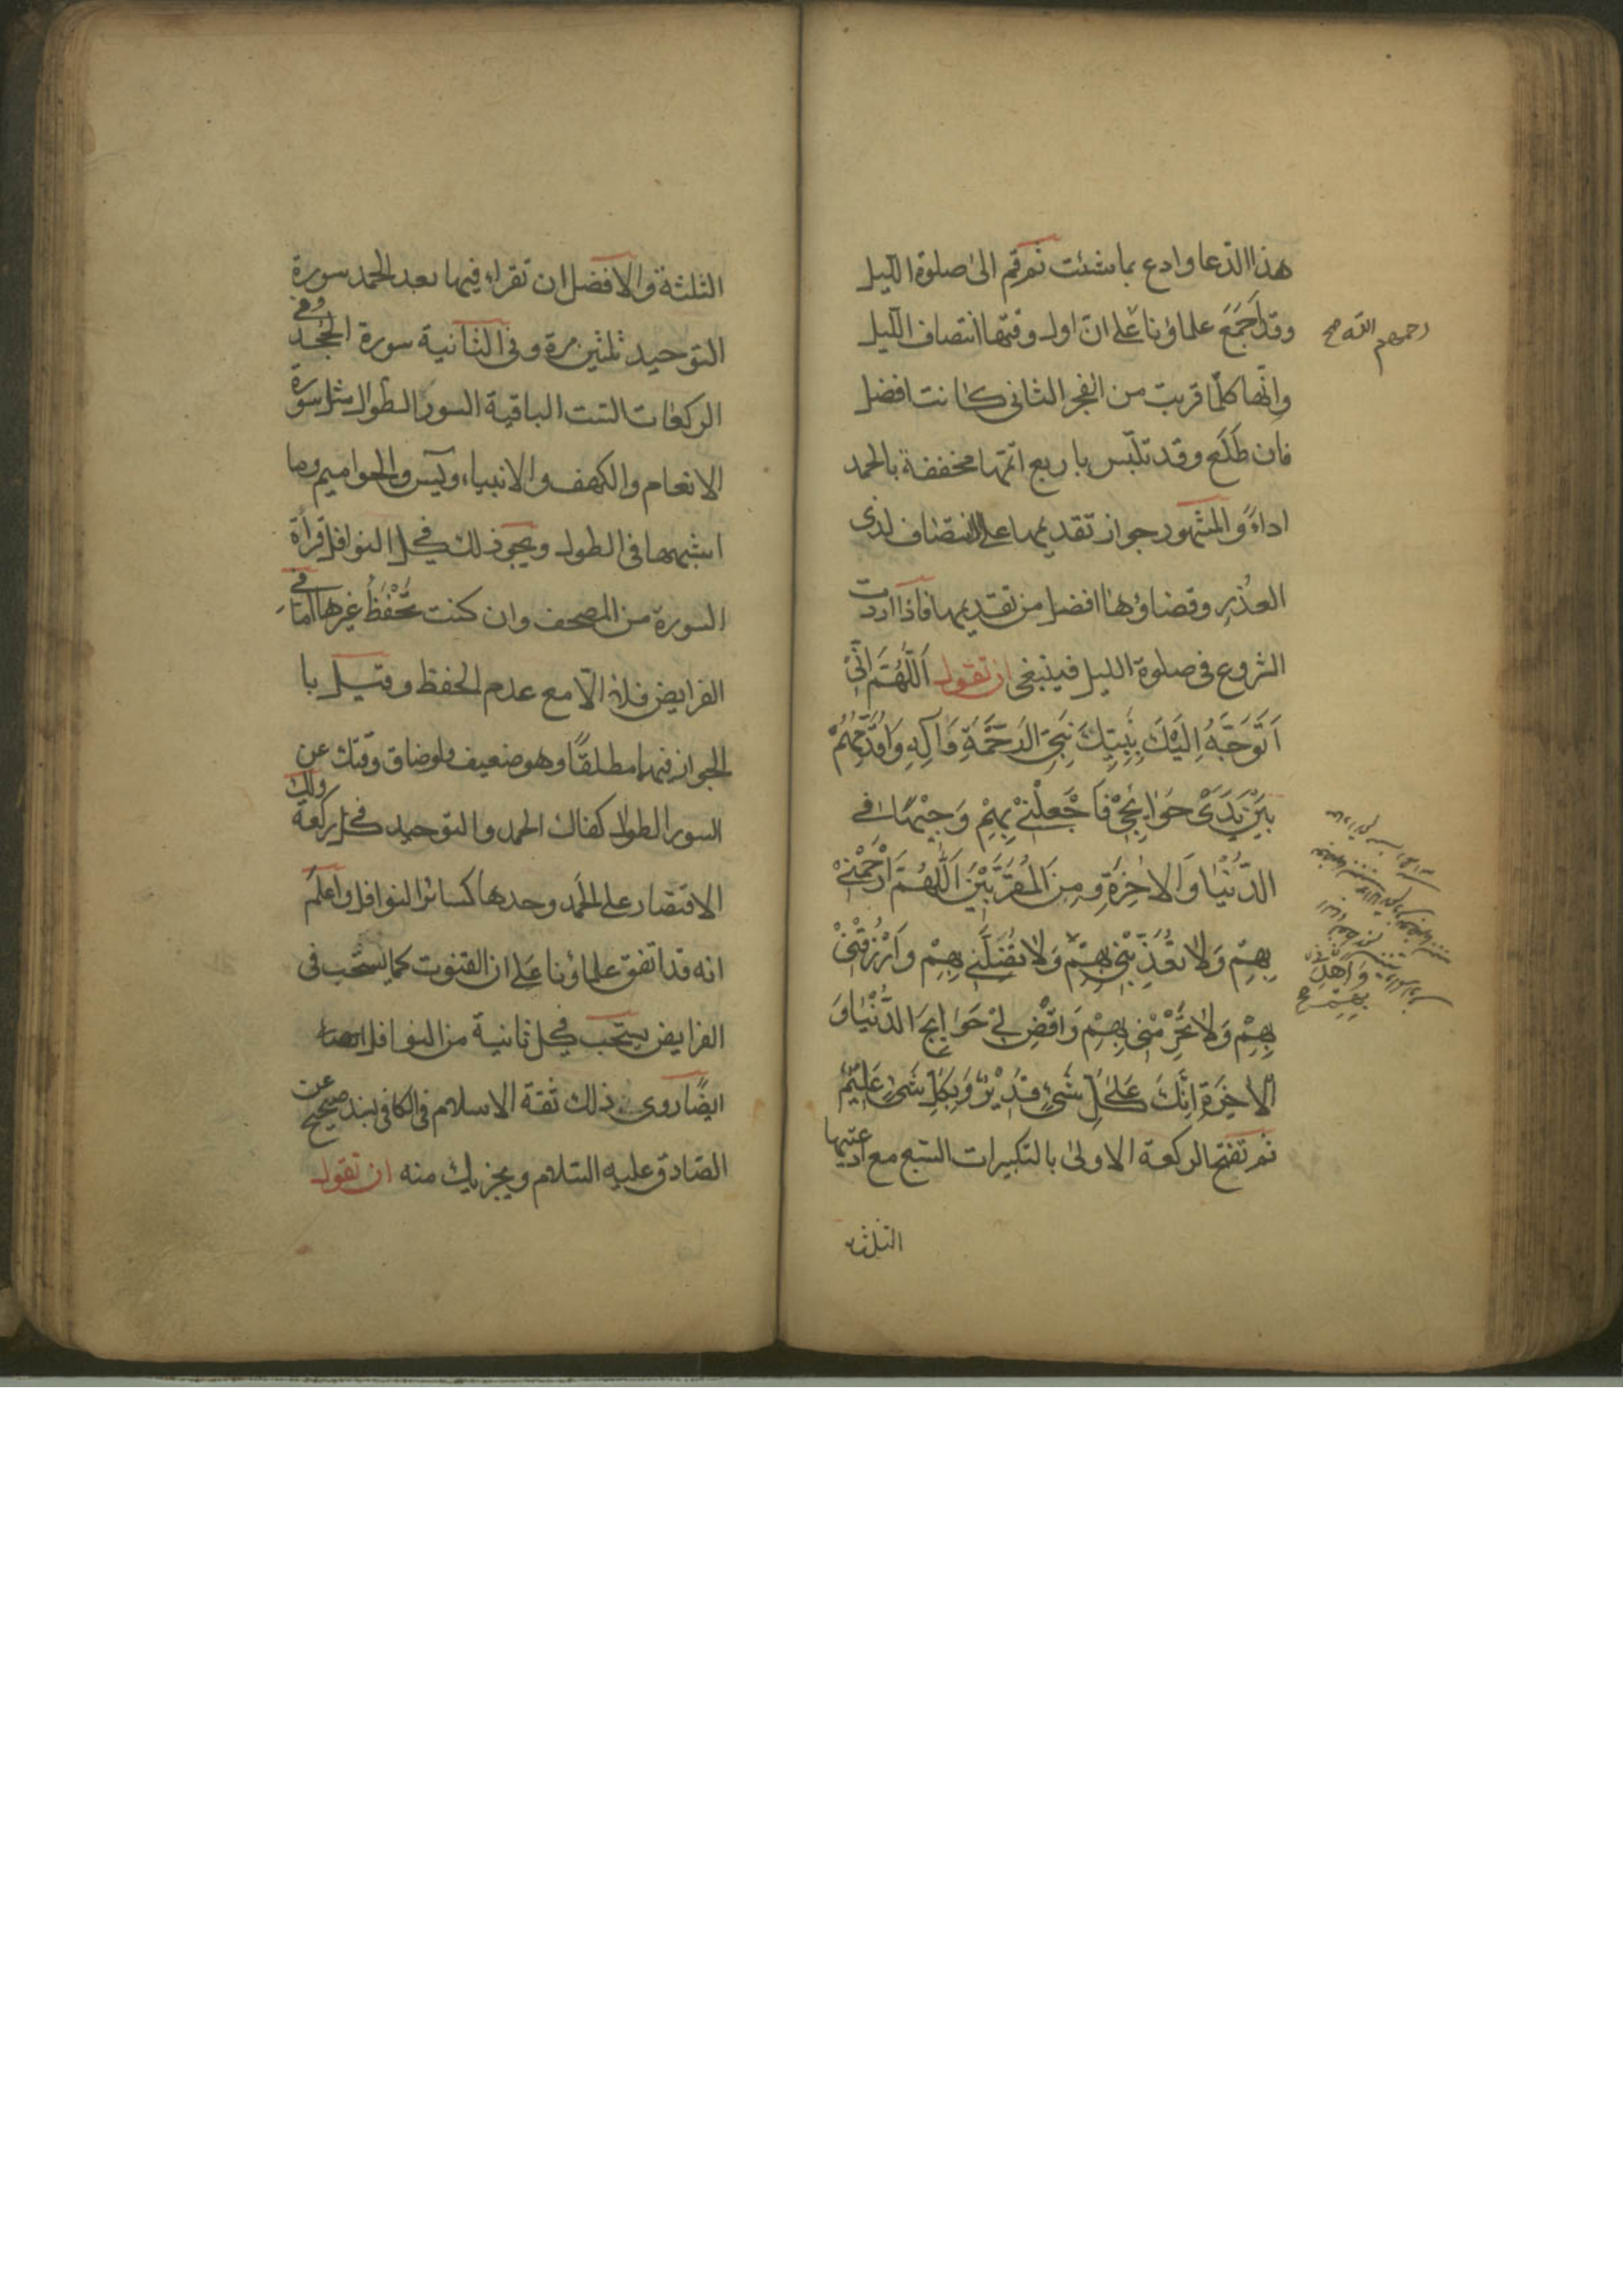 هذا الدّعا وادع بما شئت ثم قم الى صلوة اللّيل
وقد اَجمَعَ علماؤنا عَلى انّ اول وقتها انتصاف اللّيل
رحمهم الله صح
وانّها كلّما قربت من الفجر الثانى كانت افضل
فان طَلَع وقد تلبّس باربع اتمّها مخففة بالحمد
اداءً والمشهور جواز تقديمها على الانتصاف لذى
العذر وقضاؤها افضل من تقديمها فاذا اردت
الشروع فى صلوة الليل فينبغى ان تقول اَللّهُمَّ اِنّىْ
اَتَوَجَّهُ اِلَيْكَ بِنَبِيِّكَ نَبِىِّ الرَحْمَةِ وَآلِهِ وَاُقَدِّمُهُمْ
بَيْنَ يَدَىْ حَوٰائِجىْ فَاجْعَلْنىْ بِهِمْ وَجيْهًا فى
الدُّنْيٰا وَالاٰخِرَةِ وَمِنَ المُقَرَّبيْنَ اَللّٰهُمَّ ارْحَمْنىْ
بِهِمْ وَلاٰ تُعَذِّبْنى بِهِمْ وَلاٰ تُضِلَّنى بِهِمْ وَارْزُقْنىْ
وَاهْدِنى
بِهِمْ صح
بِهِمْ وَلاٰ تَحْرِمْنى بِهِمْ وَاقْضِ لىْ حَوٰايِجَ الدُّنْيٰا وَ
الاٰخِرَةِ اِنَّكَ عَلىٰ كُلِّ شَىْءٍ قَديْرٌ وَبِكُلِّ شَىْءٍ عَليْمٌ
ثم تفتح الركعة الاولىٰ بالتكبيرات السّبع مع ادعيتها
الثلثة
الثلثة والافضل ان تقراء فيها بعد الحمد سورة
التوحيد ثلثين مرة وفى الثانية سورة الجحد وفى
الركعات الستّ الباقية السور الطوال مثل سورة
الانعام والكهف والانبياء ويٓس والحواميم وما
اشبهها فى الطول ويجوز لك فى كل النوافل قراءة
السورة من المصحف وان كنت تَحْفَظُ غيرها امّا فى
الفرايض فلا الّا مع عدم الحفظ وقيل با
لجواز فيها مطلقًا وهو ضعيف ولو ضاق وقتك عن
السور الطوال كفاك الحمد والتوحيد فى كل ركعة ولك
الاقتصار على الحَمد وحدها كسائر النوافل واعلَم
انه قد اتفق علماؤنا عَلى ان القنوت كما يستحَب فى
الفرايض يستحَب فى كل ثانية من النوافل
ايضًا روى ذلك ثقة الاسلام فى الكافى بسند صحيح عن
الصّادق عليه السّلام ويجزيك منه ان تقول